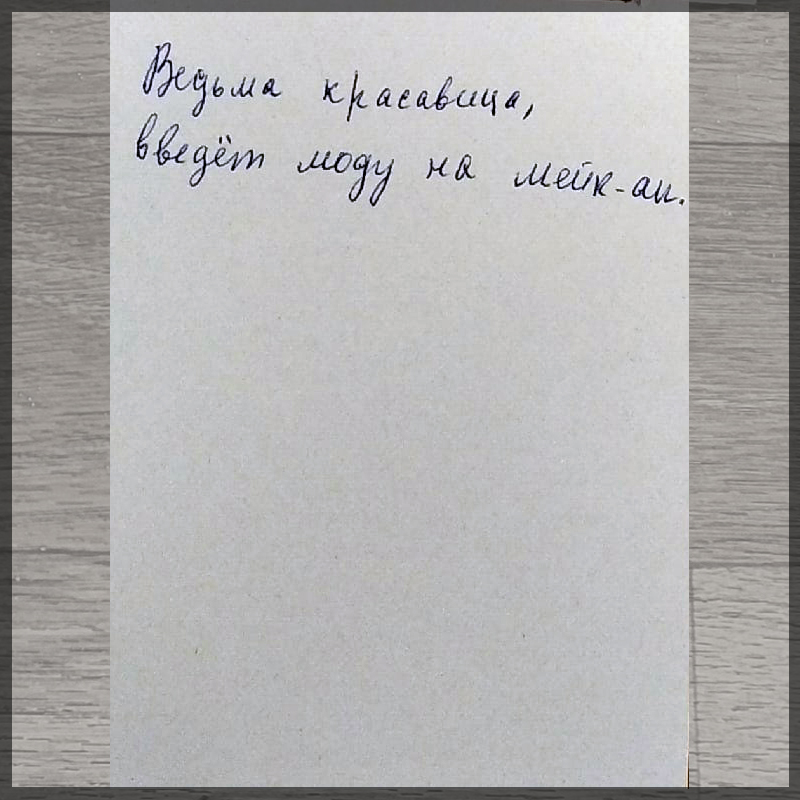 Ведьма красавица,
введёт моду на мейк-ап.